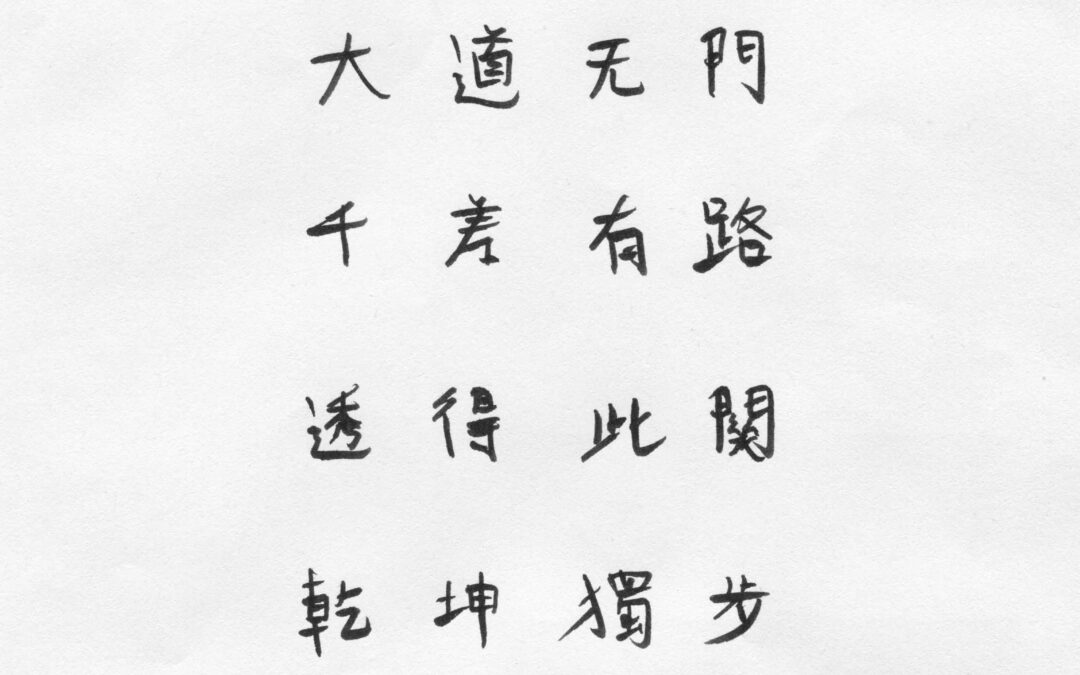 大道无門
千差有路
透得此関
乾坤獨步